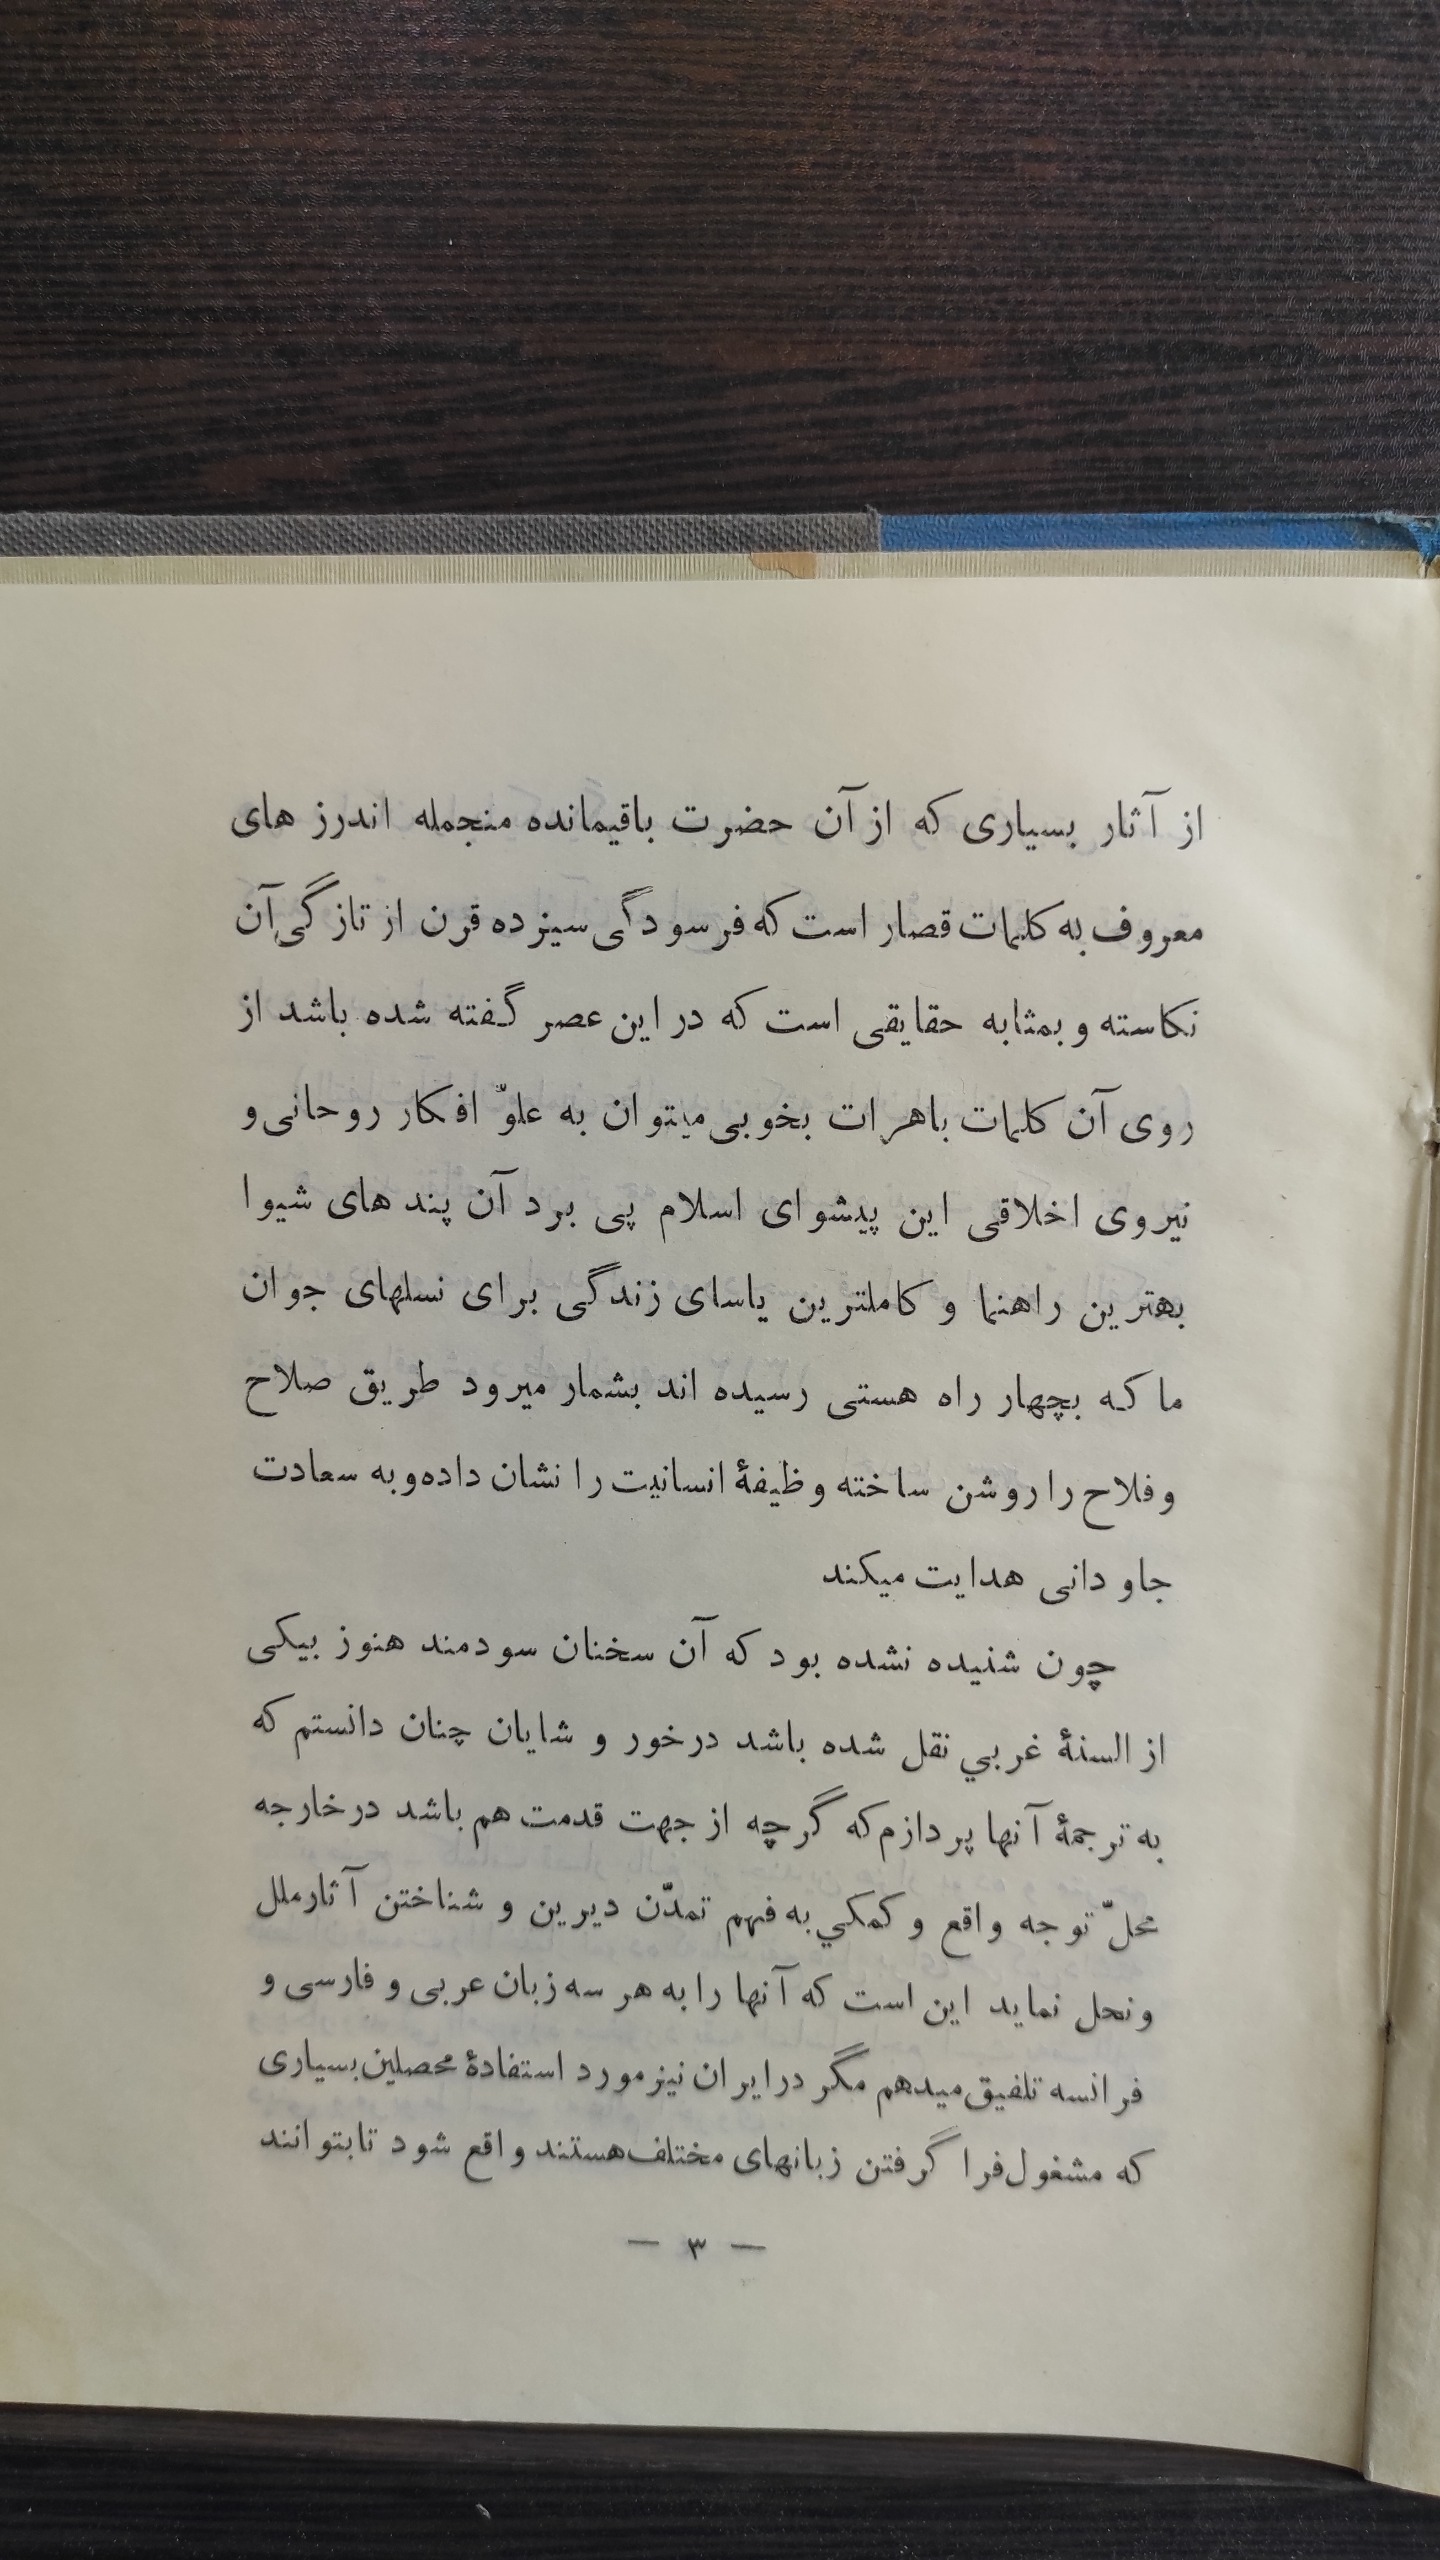 از آثار بسیاری که از آن حضرت باقیمانده منجمله اندرز های
معروف به کلمات قصار است که فرسودگی سیزده قرن از تازگیِ آن
نکاسته و بمثابه حقایقی است که در این عصر گفته شده باشد از
روی آن کلمات باهرات بخوبی میتوان به علوّ افکار روحانی و
نیروی اخلاقی این پیشوای اسلام پی برد آن پند های شیوا
بهترین راهنما و کاملترین یاسای زندگی برای نسلهای جوان
ما که بچهار راه هستی رسیده اند بشمار میرود طریق صلاح
و فلاح را روشن ساخته وظیفهٔ انسانیت را نشان داده و به سعادت
جاودانی هدایت میکند
چون شنیده نشده بود که آن سخنان سودمند هنوز بیکی
از السنهٔ غربي نقل شده باشد درخور و شایان چنان دانستم که
به ترجمهٔ آنها پردازم که گرچه از جهت قدمت هم باشد در خارجه
محلّ توجه واقع و کمکي به فهم تمدّن دیرین و شناختن آثار ملل
و نحل نماید این است که آنها را به هر سه زبان عربی و فارسی و
فرانسه تلفیق میدهم مگر در ایران نیز مورد استفادهٔ محصلین بسیاری
که مشغول فرا گرفتن زبانهای مختلف هستند واقع شود تا بتوانند
— ۳ —